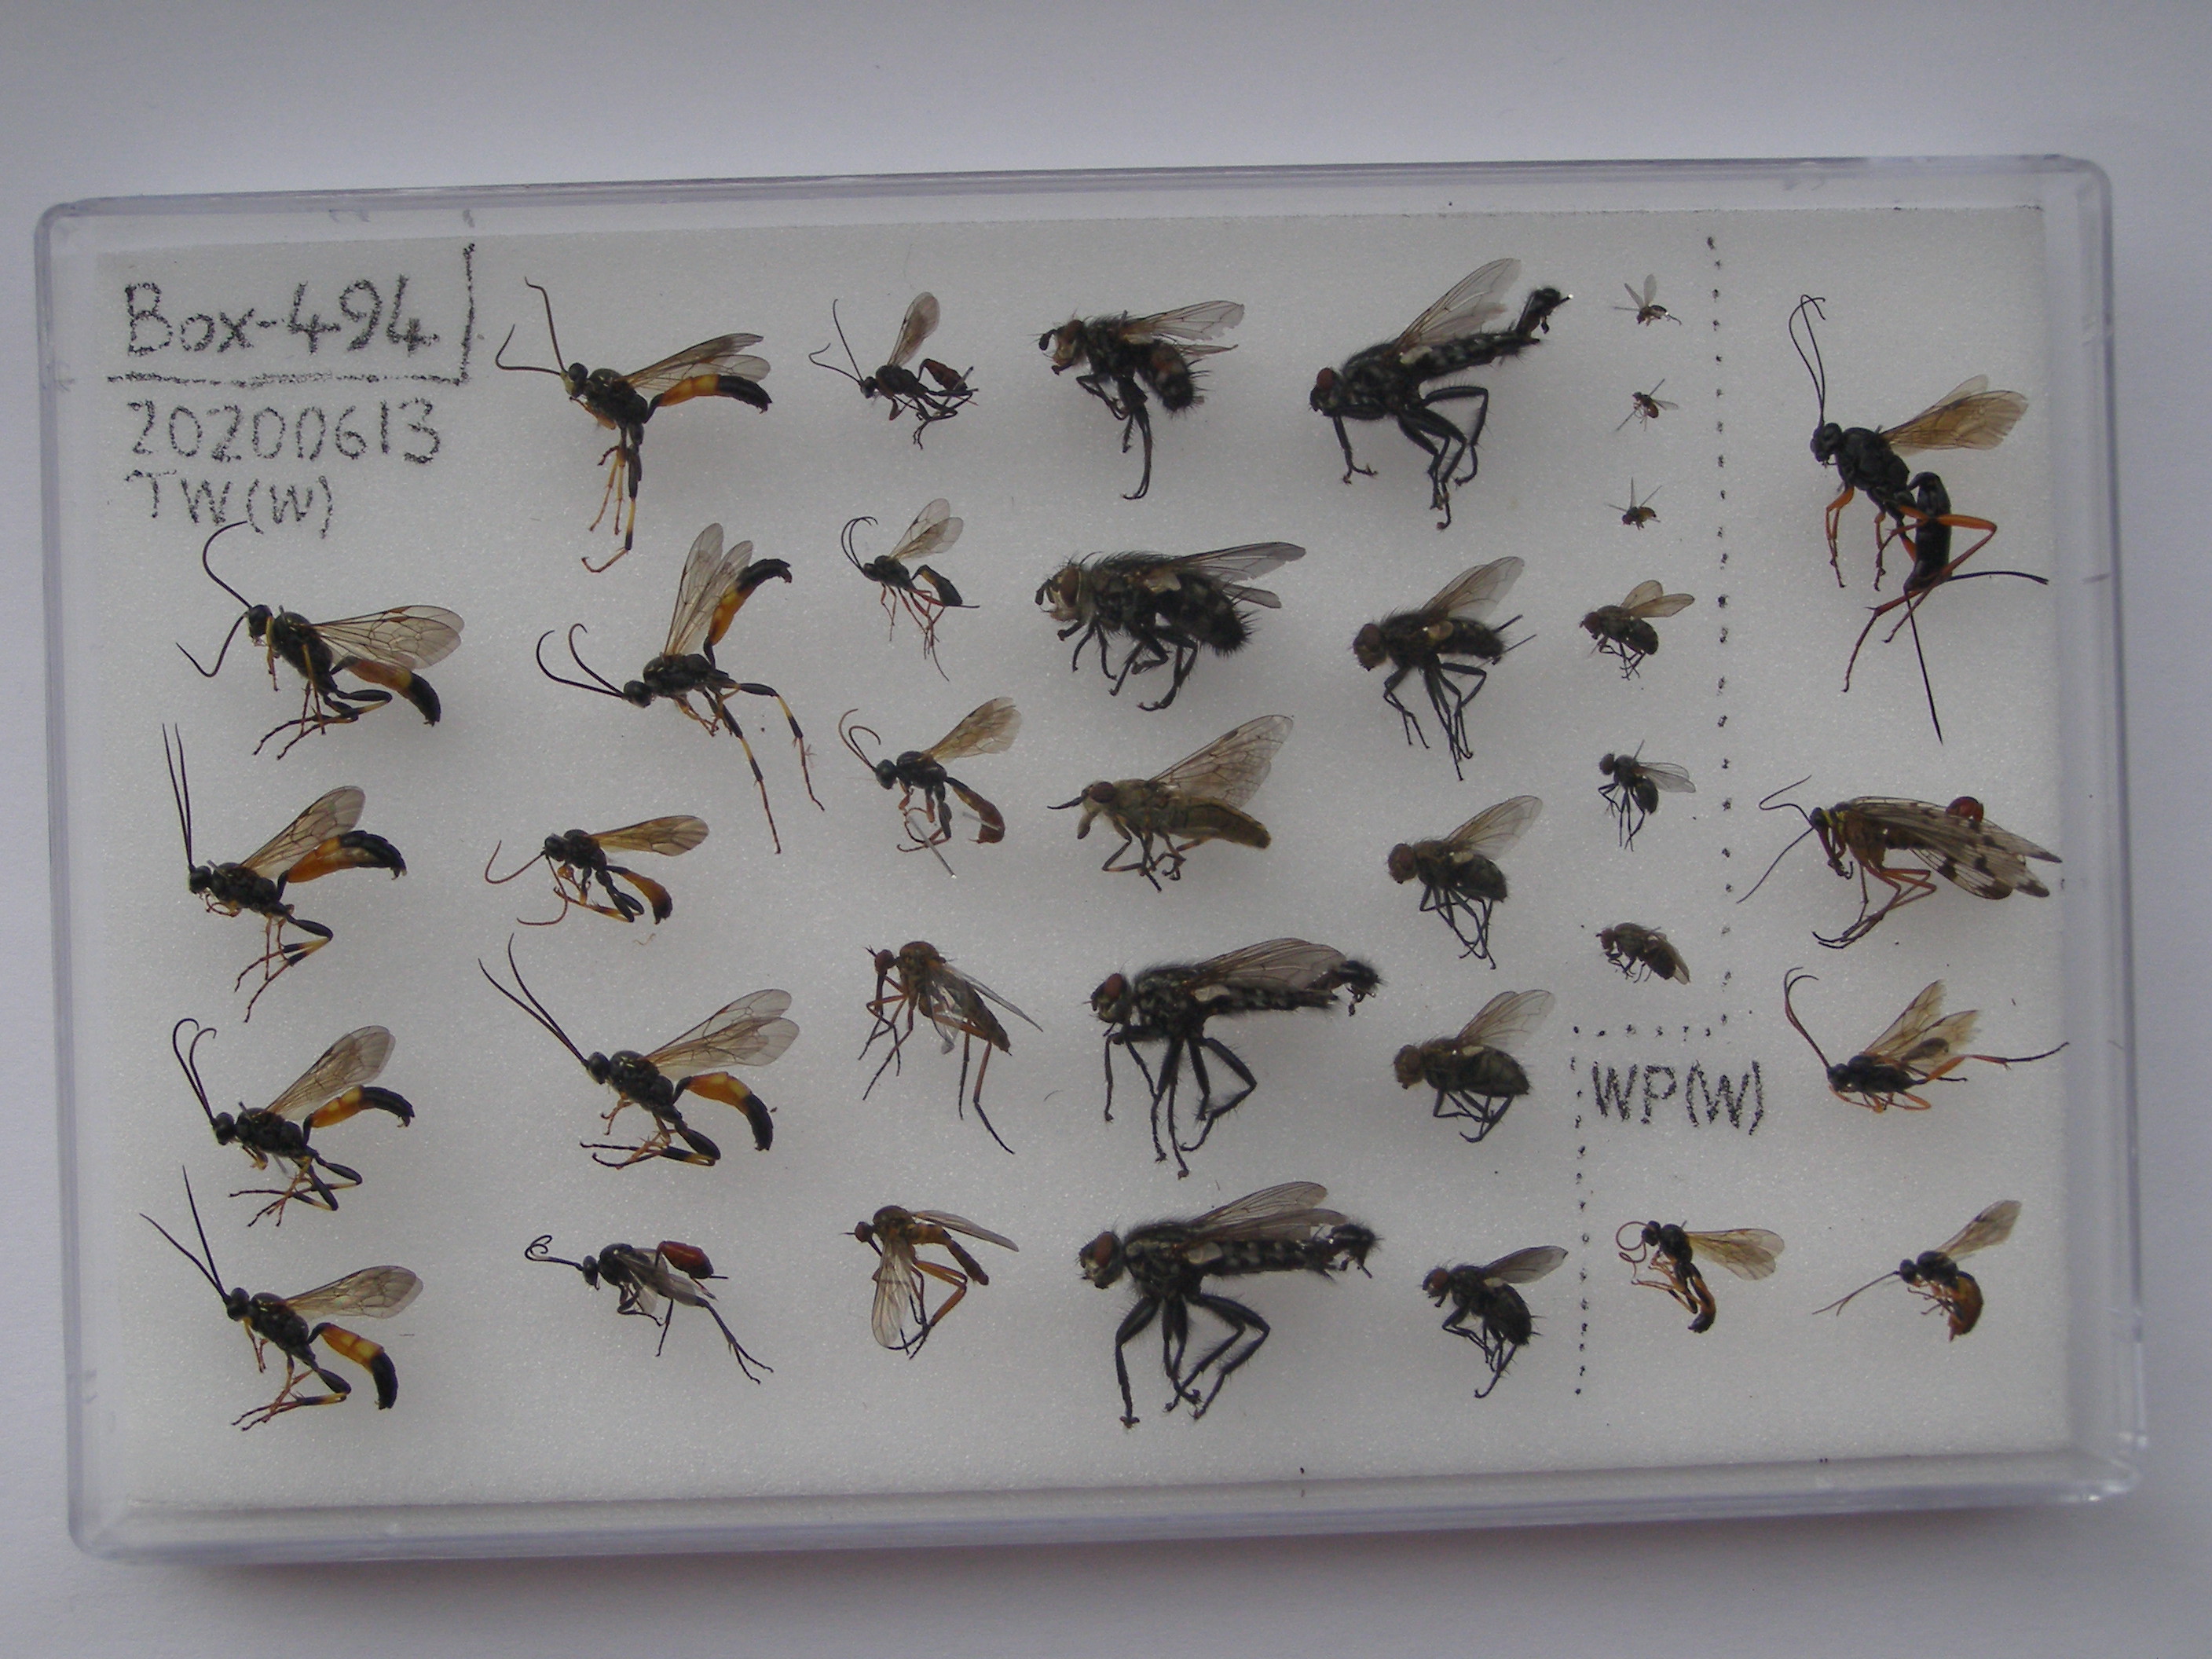 Box-494
20200613
TW(W)
WP(W)